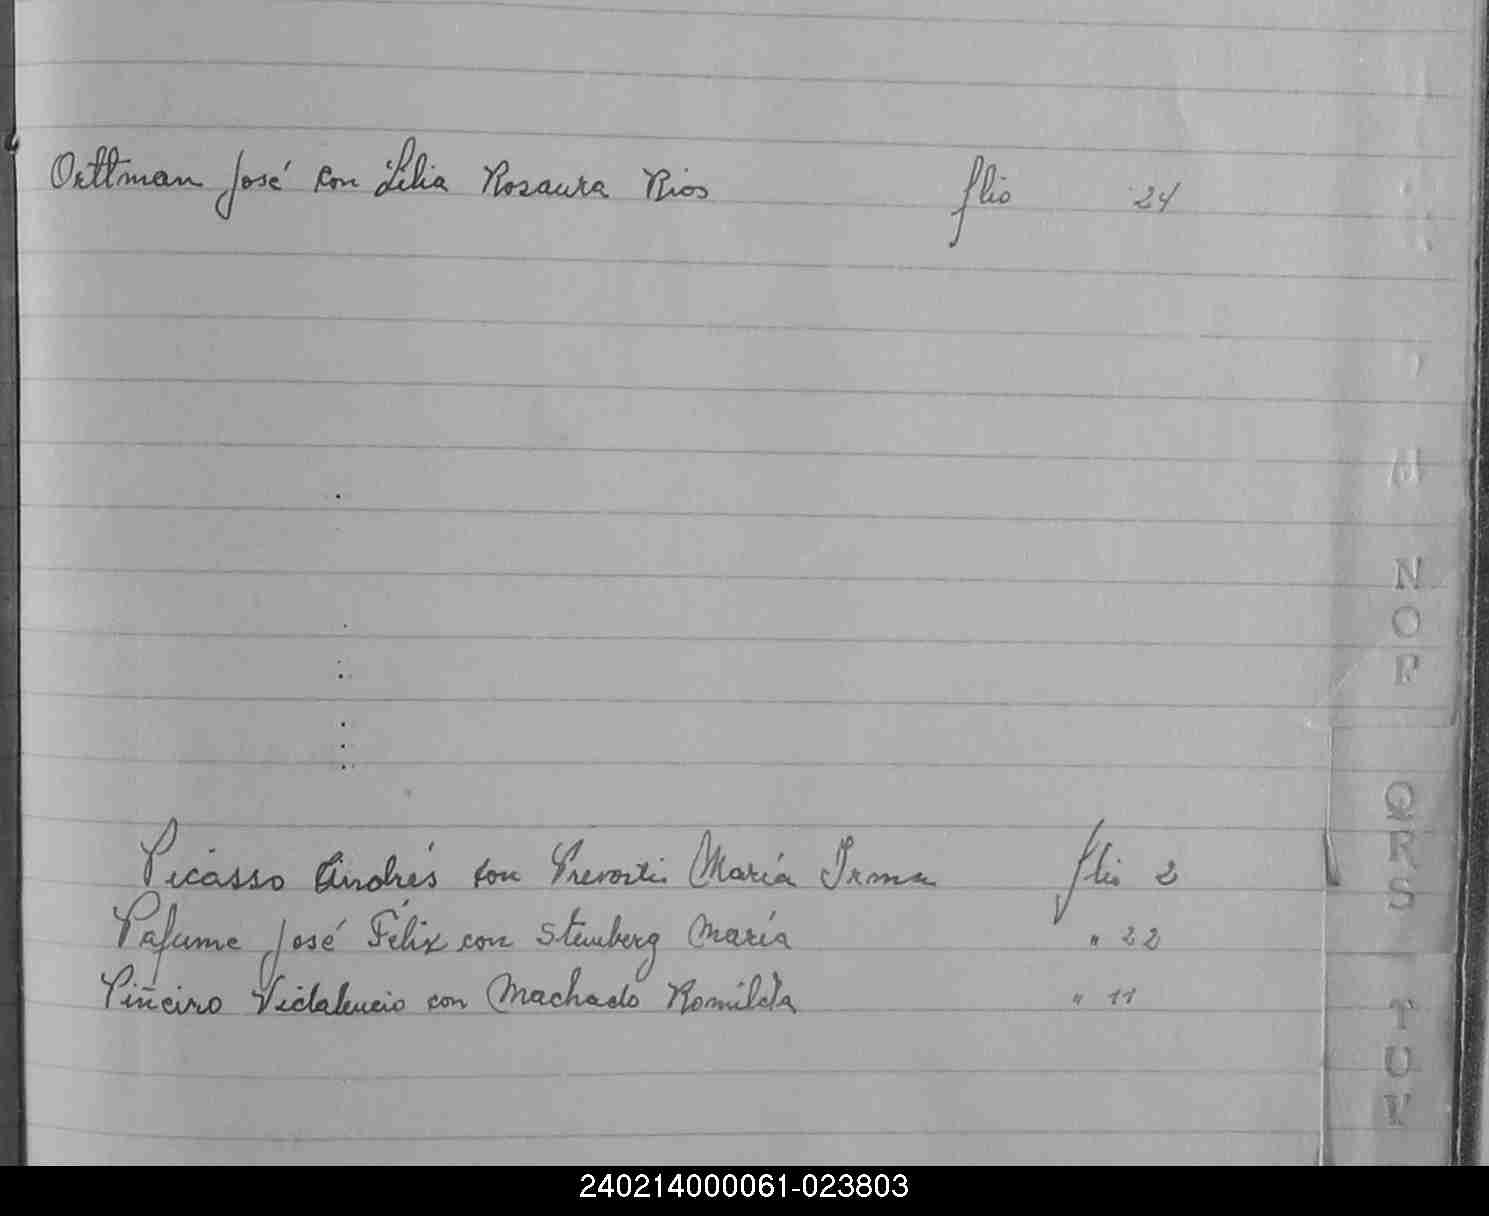 Oettman José con Lilia Rosaura Rios flio 24
Picasso Andrés con Prevosti María Irma flio 2
Pafume José Félix con Stemberg María " 22
Piñeiro Vidalucio con Machado Romilda " 11
M
N
O
P
Q
R
S
T
U
V
240214000061-023803